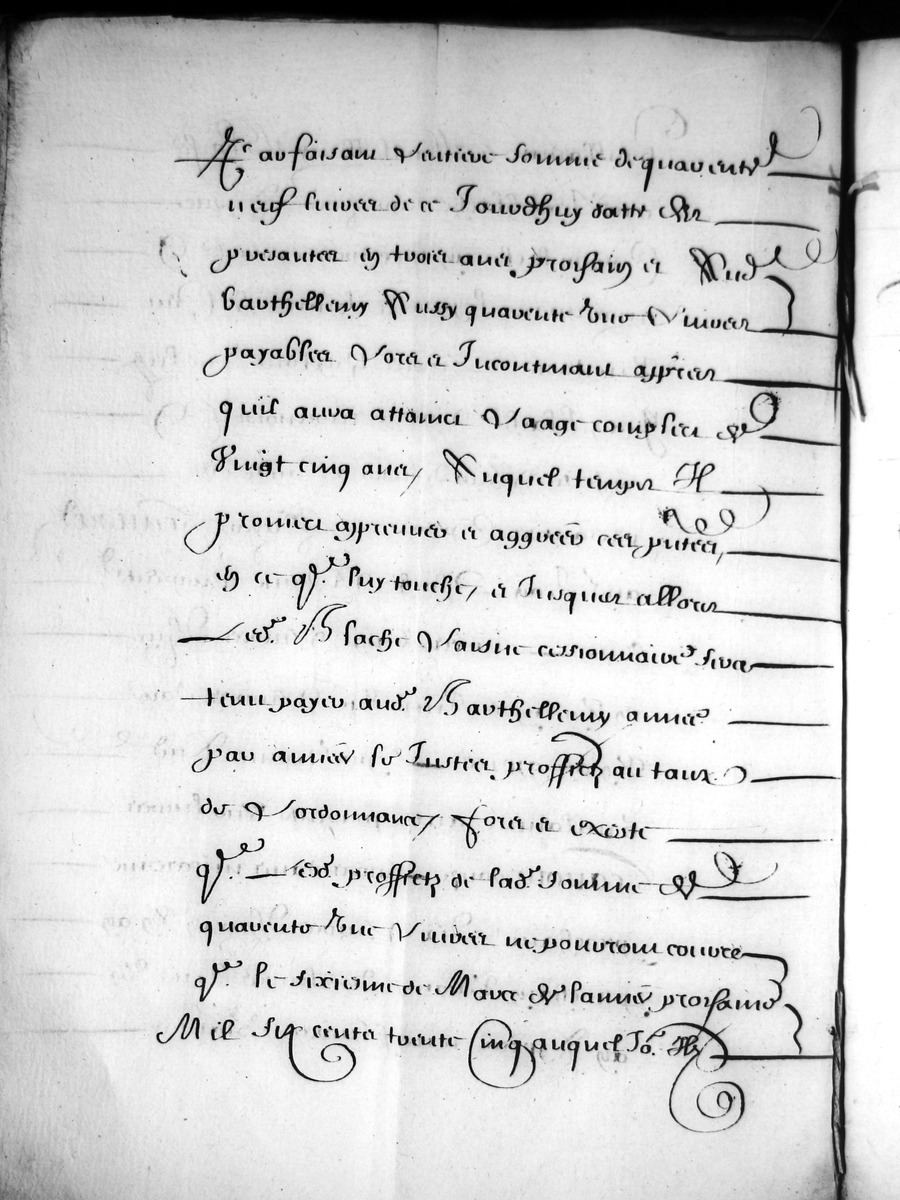 Et aufaisant l'entiere somme de quarente
neuf livres de ce Jourdhuy datte des
presantes en trois ans prochain et Aud
barthellemy Aussy quarente une l'ivres
payables lors et Incontinant appres
quil aura attainct l'aage complect de
Vingt cinq ans, Auquel temps Il
promect appreuver et aggreer ces pntes,
en ce q. luy touche, et Jusques allors
Led. Blache l'aisne cessionnaire sera
tenu payer aud. Barthellemy annee
par annee les Justes proffictz au taux
de l'ordonnance, fors et exepte
q. Lesd. proffictz de lad. somme de
quarente une l'ivres ne pourront courre
q. le sixiesme de Mars de lannee prochaine
Mil six cents trente Cinq auquel Jo. Il